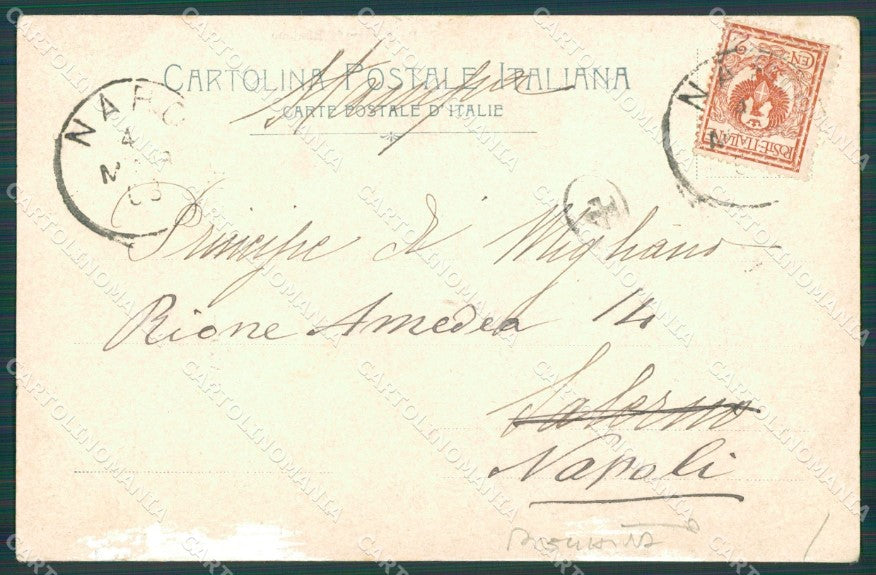 CARTOLINA POSTALE ITALIANA
Stampa
CARTE POSTALE D'ITALIE
NARO
4
2
03
CEN 2
POSTE·ITALIANE
NA
Principe di Migliano
Rione Amedeo 14
Salerno
Napoli
CARTOLINOMANIA